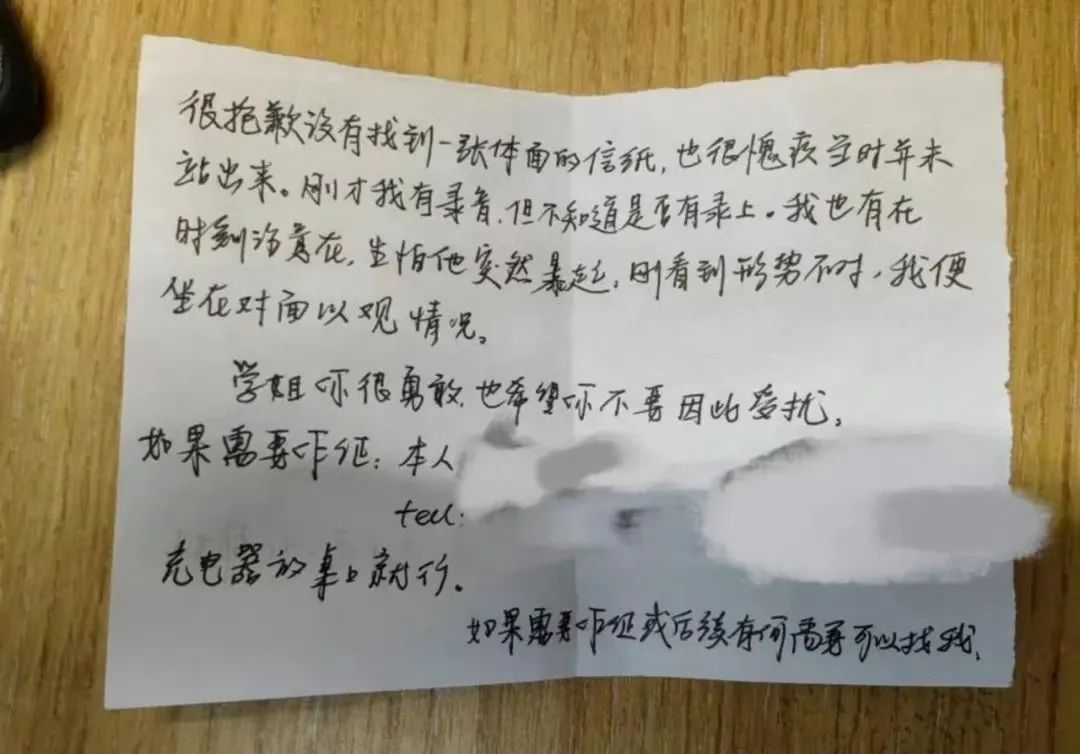 很抱歉没有找到一张体面的信纸,也很愧疚当时并未
站出来。刚才我有录音,但不知道是否有录上。我也有在
时刻注意在,生怕他突然暴起,刚看到形势不对,我便
坐在对面以观情况。
学姐你很勇敢,也希望你不要因此受扰。
如果需要作证:本人
tell:
充电器放桌上就行。
如果需要作证或后续有何需要可以找我.